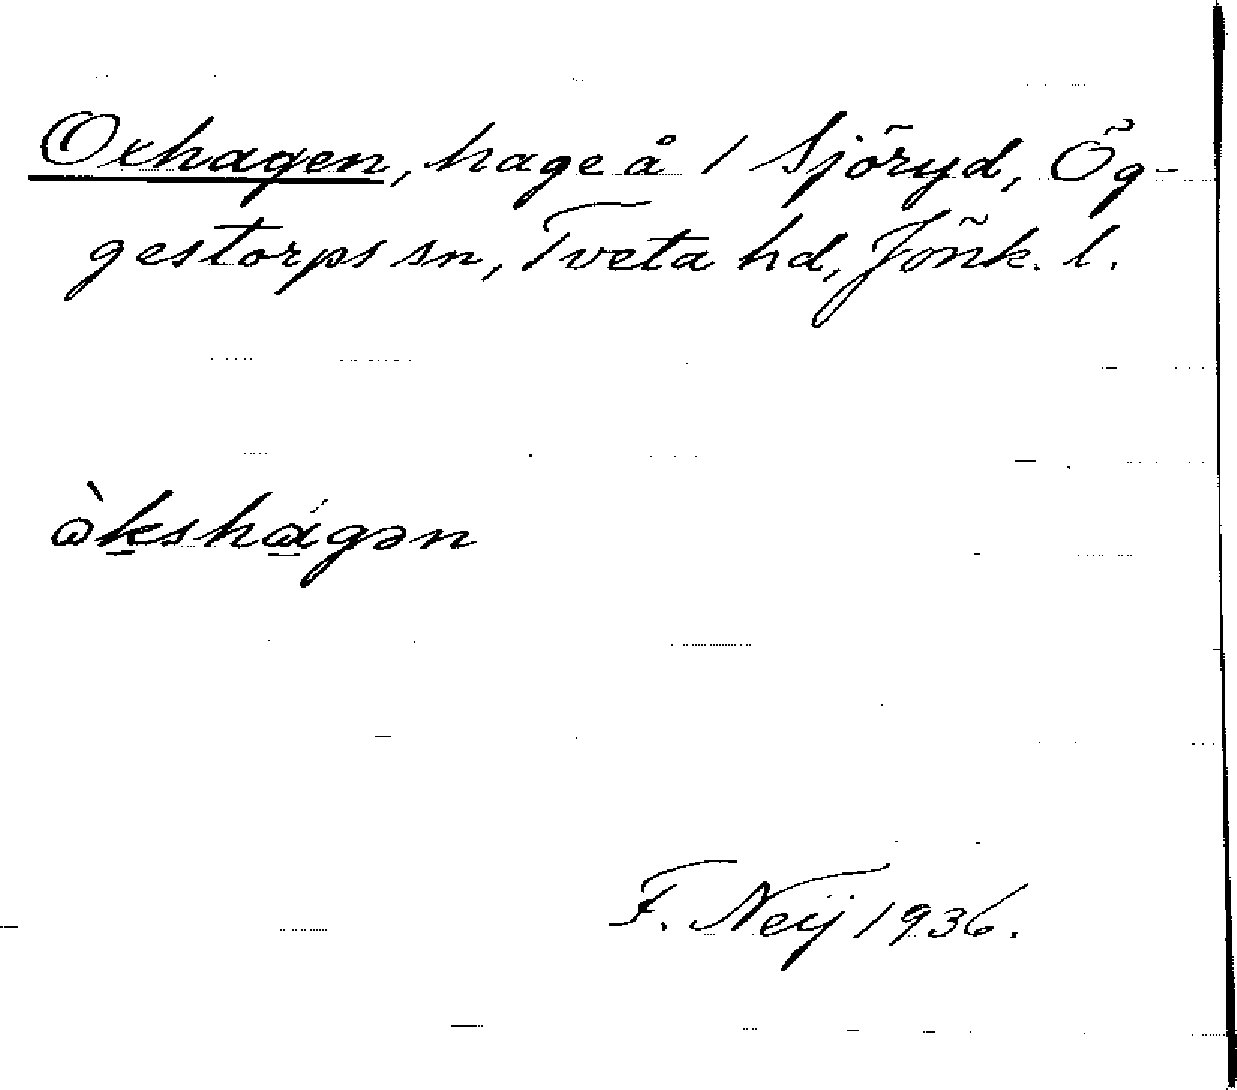 Oxhagen, hage å 1 Sjöryd, Ög-
gestorps sn, Tveta hd, Jönk. l.
ὼkshά̲gən
F. Neij 1936.